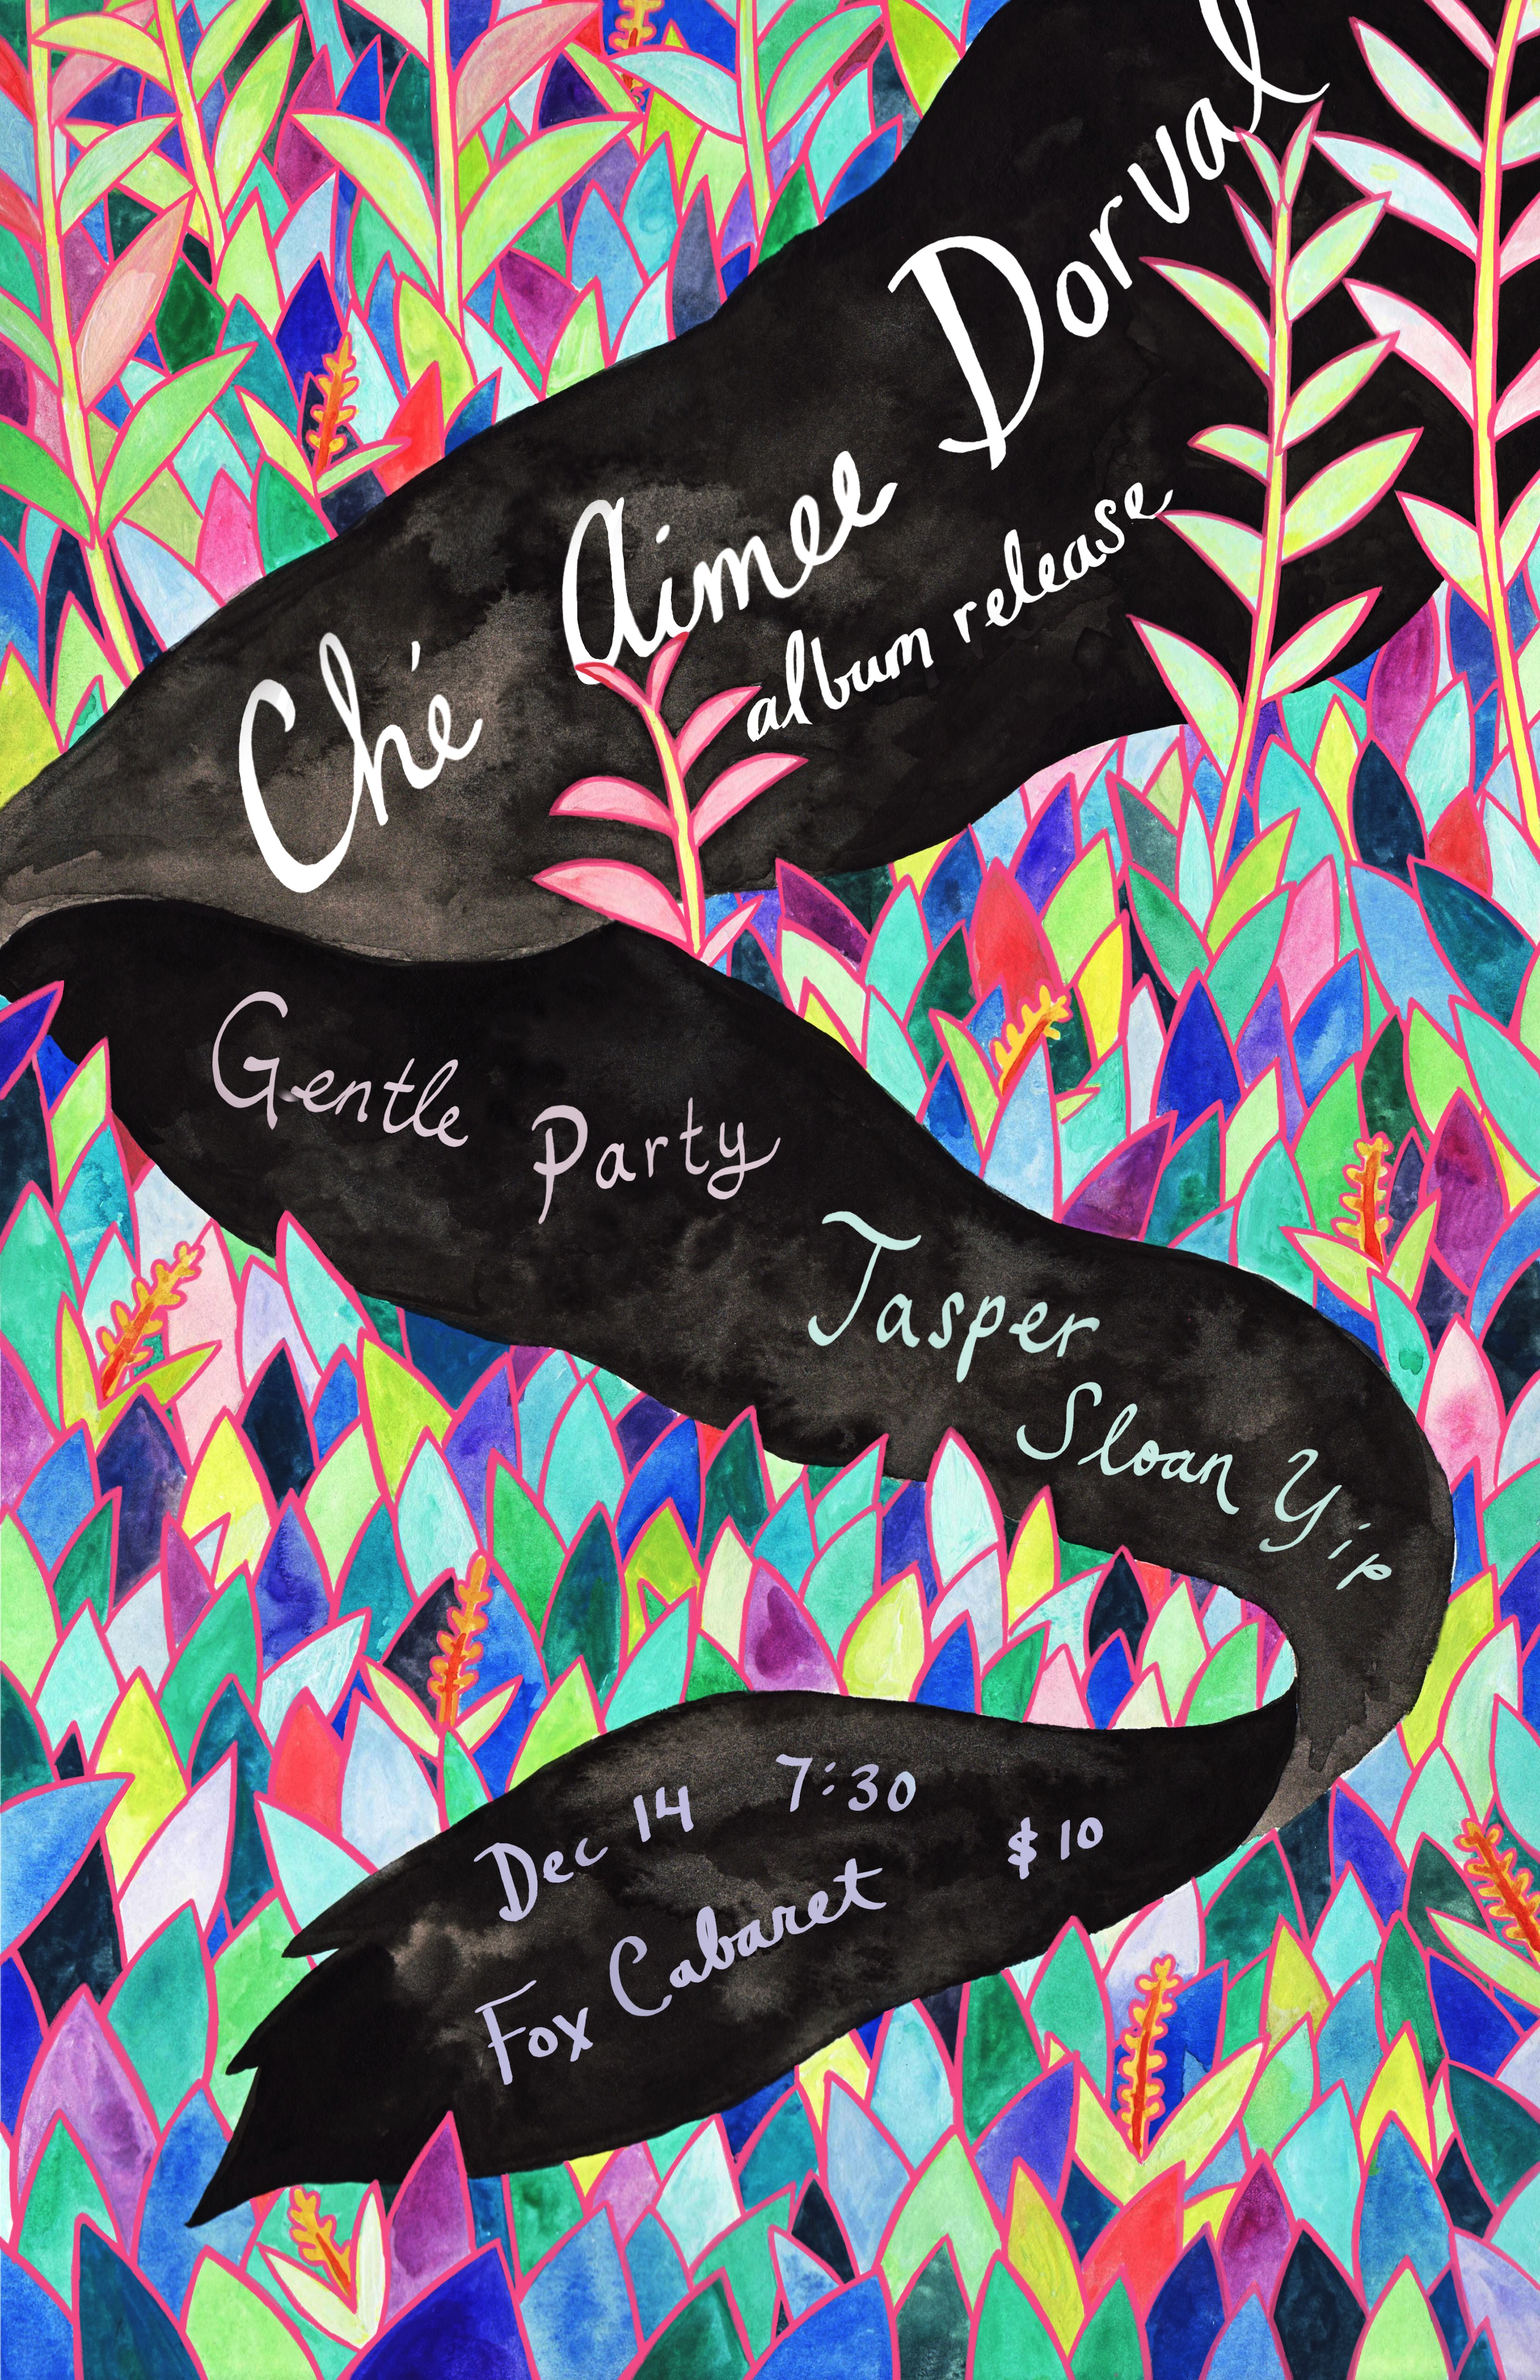 Ché Aimee Dorval
album release
Gentle Party
Jasper Sloan Yip
Dec 14 7:30
$10
Fox Cabaret